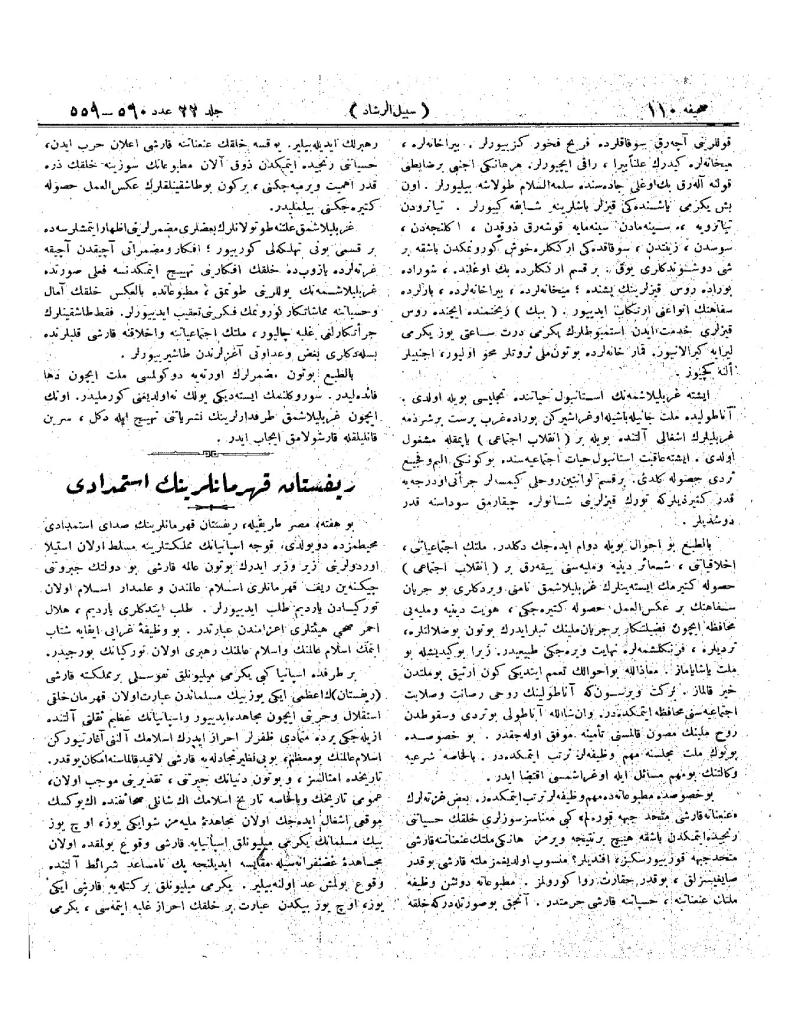 صحیفه ١١٠
( سبیل الرشاد )
جلد ٢٢ عدد ٥٩٠ – ٥٥٩
قوللرینی آچه‌رق سوقاقلرده فریح فخور کزیبورلر . بیراخانه‌لره ،
میخانه‌لره کیدرك علناً بیرا ، راقی ایچیورلر . هرهانکی اجنبی برضابطی
قولنه آله‌رق بك‌اوغلی جاده‌سنده سلمه‌السلام طولاشه بیلیورلر . اون
بش یکرمی یاشنده‌کی قیزلر باشلرینه شاپقه کیبورلر . تیاترودن
تیاترویه ، سینه‌مادن سینه‌مایه قوشه‌رق ذوقدن ، اکلنجه‌دن ،
سوسدن ، زینتدن ، سوقاقده‌کی ارککلره خوش کورونمکدن باشقه بر
شی دوشوندکلری یوق . بر قسم ارککلرده بك اوغلنده ، شوراده
بوراده روس قیزلرینك پشنده ؛ میخانه‌لرده ، بیراخانه‌لرده ، بارلرده
سفاهتك انواعنی ارتکاب ایدییور . ( بیك ) رنجنمنده ایچنده روس
قیزلری خدمت ایدن استمبوطلرك یکرمی درت ساعتی یوز یکرمی
لیرایه کیرالانیور . قمار خانه‌لرده بوتون ملی ثروتلر محو اولیور ، اجنبیلر
ألنه کچیور .
ایشته غربلیلاشمه‌نك استانبول حیاتنده تجلیسی بویله اولدی .
آناطولیده ملت جانیله باشیله اوغراشیرکن بوراده غرب پرست برشرذمه
غربلیلرك اشغالی آلتنده بویله بر ( انقلاب اجتماعی ) یاپمقله مشغول
اولدی . ایشته عاقبت استانبول حیات اجتماعیه‌سنده بوکونکی الیم وفجیع
تردی حصوله کلدی . برقسم لوانتین روحلی کیمسه‌لر جرأتی اودرجه‌یه
قدر کتیردیلرکه تورك قیزلرینی شانولره چیقارمق سوداسنه قدر
دوشدیلر .
بالطبع بو احوال بویله دوام ایده‌جك دکلدر . ملتك اجتماعیاتی ،
اخلاقیاتی ، شعائر دینیه وملیه‌سنی ییقه‌رق بر ( انقلاب اجتماعی )
حصوله کتیرمك ایسته‌ینلرك غربلیلاشمق نامنی ویردکلری بو جریان
سفاهتك بر عکس‌العمل حصوله کتیره‌جکی ، هویت دینیه وملیه‌یی
محافظه ایچون فضیلتکار برجریان ملینك تبلرایدرك بوتون بوضلالتلره ،
تردیلره ، فرنکلشمه‌لره نهایت ویره‌جکی طبیعیدر . زیرا بوکیدیشله بو
ملت یاشایاماز . معاذالله بواحوالك تعمم ایتدیکی کون آرتیق بوملتدن
خیر قالماز . برکت ویرسون‌که آناطولینك روحی رصانت وصلابت
اجتماعیه‌سنی محافظه ایتمکده‌در . وان‌شاءالله آناطولی بوتردی وسقوطدن
روح ملینك مصون قالمسنی تأمینه موفق اوله‌جقدر . بو خصوصده
بویوك ملت مجلسنه مهم وظیفه‌لر ترتب ایتمکده‌در . بالخاصه شرعیه
وکالتنك بومهم مسائل ایله اوغراشمسی اقتضا ایدر .
بوخصوصده مطبوعاته‌ده مهم وظیفه‌لر ترتب ایتمکده‌در . بعض غزته‌لرك
«عنعناته قارشی متحد جبهه قوره‌لم» کبی معناسز سوزلری خلقك حسیاتنی
رنجیده ایتمکدن باشقه هیچ برنتیجه ویرمز . هانکی ملتك عنعناتنه قارشی
متحد جبهه قوریبورسکز، افندیلر؟ منسوب اولدیغمز ملته قارشی بوقدر
صایغیسزلق ، بوقدر حقارت روا کورولمز . مطبوعاته دوشن وظیفه
ملتك عنعناتنه ، حسیاتنه قارشی حرمتدر . آنجق بوصورتله‌درکه خلقه
رهبرلك ایدیله‌بیلیر. یوقسه خلقك عنعناتنه قارشی اعلان حرب ایدن،
حسیاتنی رنجیده ایتمکدن ذوق آلان مطبوعاتك سوزینه خلقك ذره
قدر اهمیت ویرمیه‌جکنی ، برکون بوطاشقینلقلرك عکس‌العمل حصوله
کتیره‌جکنی بیلملیدر.
غربلیلاشمق علتنه طوتولانلرك بعضلری مضمرلرینی اظهار ایتمشلرسه‌ده
بر قسمی بونی تهلکه‌لی کورییور ؛ افکار ومضمراتی آچیقدن آچیقه
غزته‌لرده یازوب‌ده خلقك افکارینی تهییج ایتمکدنسه فعلی صورتده
غربلیلاشمه‌نك یوللرینی طوتمق ، مطبوعاتده بالعکس خلقك آمال
وحسیاتنه مماشاتکار کورونمك فکرینی تعقیب ایدییورلر. فقط طاشقینلرك
جرأتکارلغی غلبه چالیور، ملتك اجتماعیاتنه واخلاقنه قارشی قلبلرنده
بسله‌دکلری بغض وعداوتی آغزلرندن طاشیریبورلر .
بالطبع بوتون مضمرلرك اورته‌یه دوکولمسی ملت ایچون دها
فائده‌لیدر. سوروکلنمك ایسته‌دیکی یولك نه‌اولدیغنی کورملیدر. اونك
ایچون غربلیلاشمق طرفدارلرینك نشریاتنی تهییج ایله دکل ، سرین
قانلیلقله قارشولامق ایجاب ایدر .
ریفستان قهرمانلرینك استمدادی
بو هفته، مصر طریقیله، ریفستان قهرمانلرینك صدای استمدادی
محیطمزده دویولدی. قوجه اسپانیانك مملکتلرینه مسلط اولان استیلا
اوردولرینی زیر وزبر ایدرك بوتون عالمه قارشی بو دولتك جبروتی
چیکنه‌ین ریف قهرمانلری اسلام عالمندن و علمدار اسلام اولان
تورکیادن یاردیم طلب ایدییورلر . طلب ایتدکلری یاردیم ، هلال
احمر صحی هیئتلری اعزامندن عبارتدر . بو وظیفهٔ غرابی ایفایه شتاب
ایتمك اسلام عالمنك واسلام عالمنك رهبری اولان تورکیانك بورجیدر.
بر طرفده اسپانیا کبی یکرمی میلیونلق نفوسلی بر مملکته قارشی
(ریفستان)ك اعظمی ایکی یوزبیك مسلماندن عبارت اولان قهرمان خلقی
استقلال وحریتی ایچون مجاهده ایدییور واسپانیانك عظیم ثقلتی آلتنده
ازیله‌جکی یرده متمادی ظفرلر احراز ایدرك اسلامك آلنی آغارتیورکن
اسلام عالمنك بومعظم، بوبی‌نظیر مجادله‌یه قارشی لاقید قالماسنه امکان یوقدر.
تاریخده امثالسز ، و بوتون دنیانك حیرتی ، تقدیرینی موجب اولان،
عمومی تاریخك وبالخاصه تاریخ اسلامك اك شانلی صحائفنده اك یوکسك
موقعی اشغال ایده‌جك اولان مجاهدهٔ ملیه‌مز شوایکی یوز ، اوچ یوز
بیك مسلمانك یکرمی میلیونلق اسپانیایه قارشی وقوع بولمقده اولان
مجاهدهٔ غضنفرانه‌سیله مقایسه ایدیلنجه پك نامساعد شرائط آلتنده
وقوع بولمش عد اولنه‌بیلیر . یکرمی میلیونلق برکتله‌یه قارشی ایکی
یوز، اوچ یوز بیکدن عبارت بر خلقك احراز غلبه ایتمه‌سی ، یکرمی